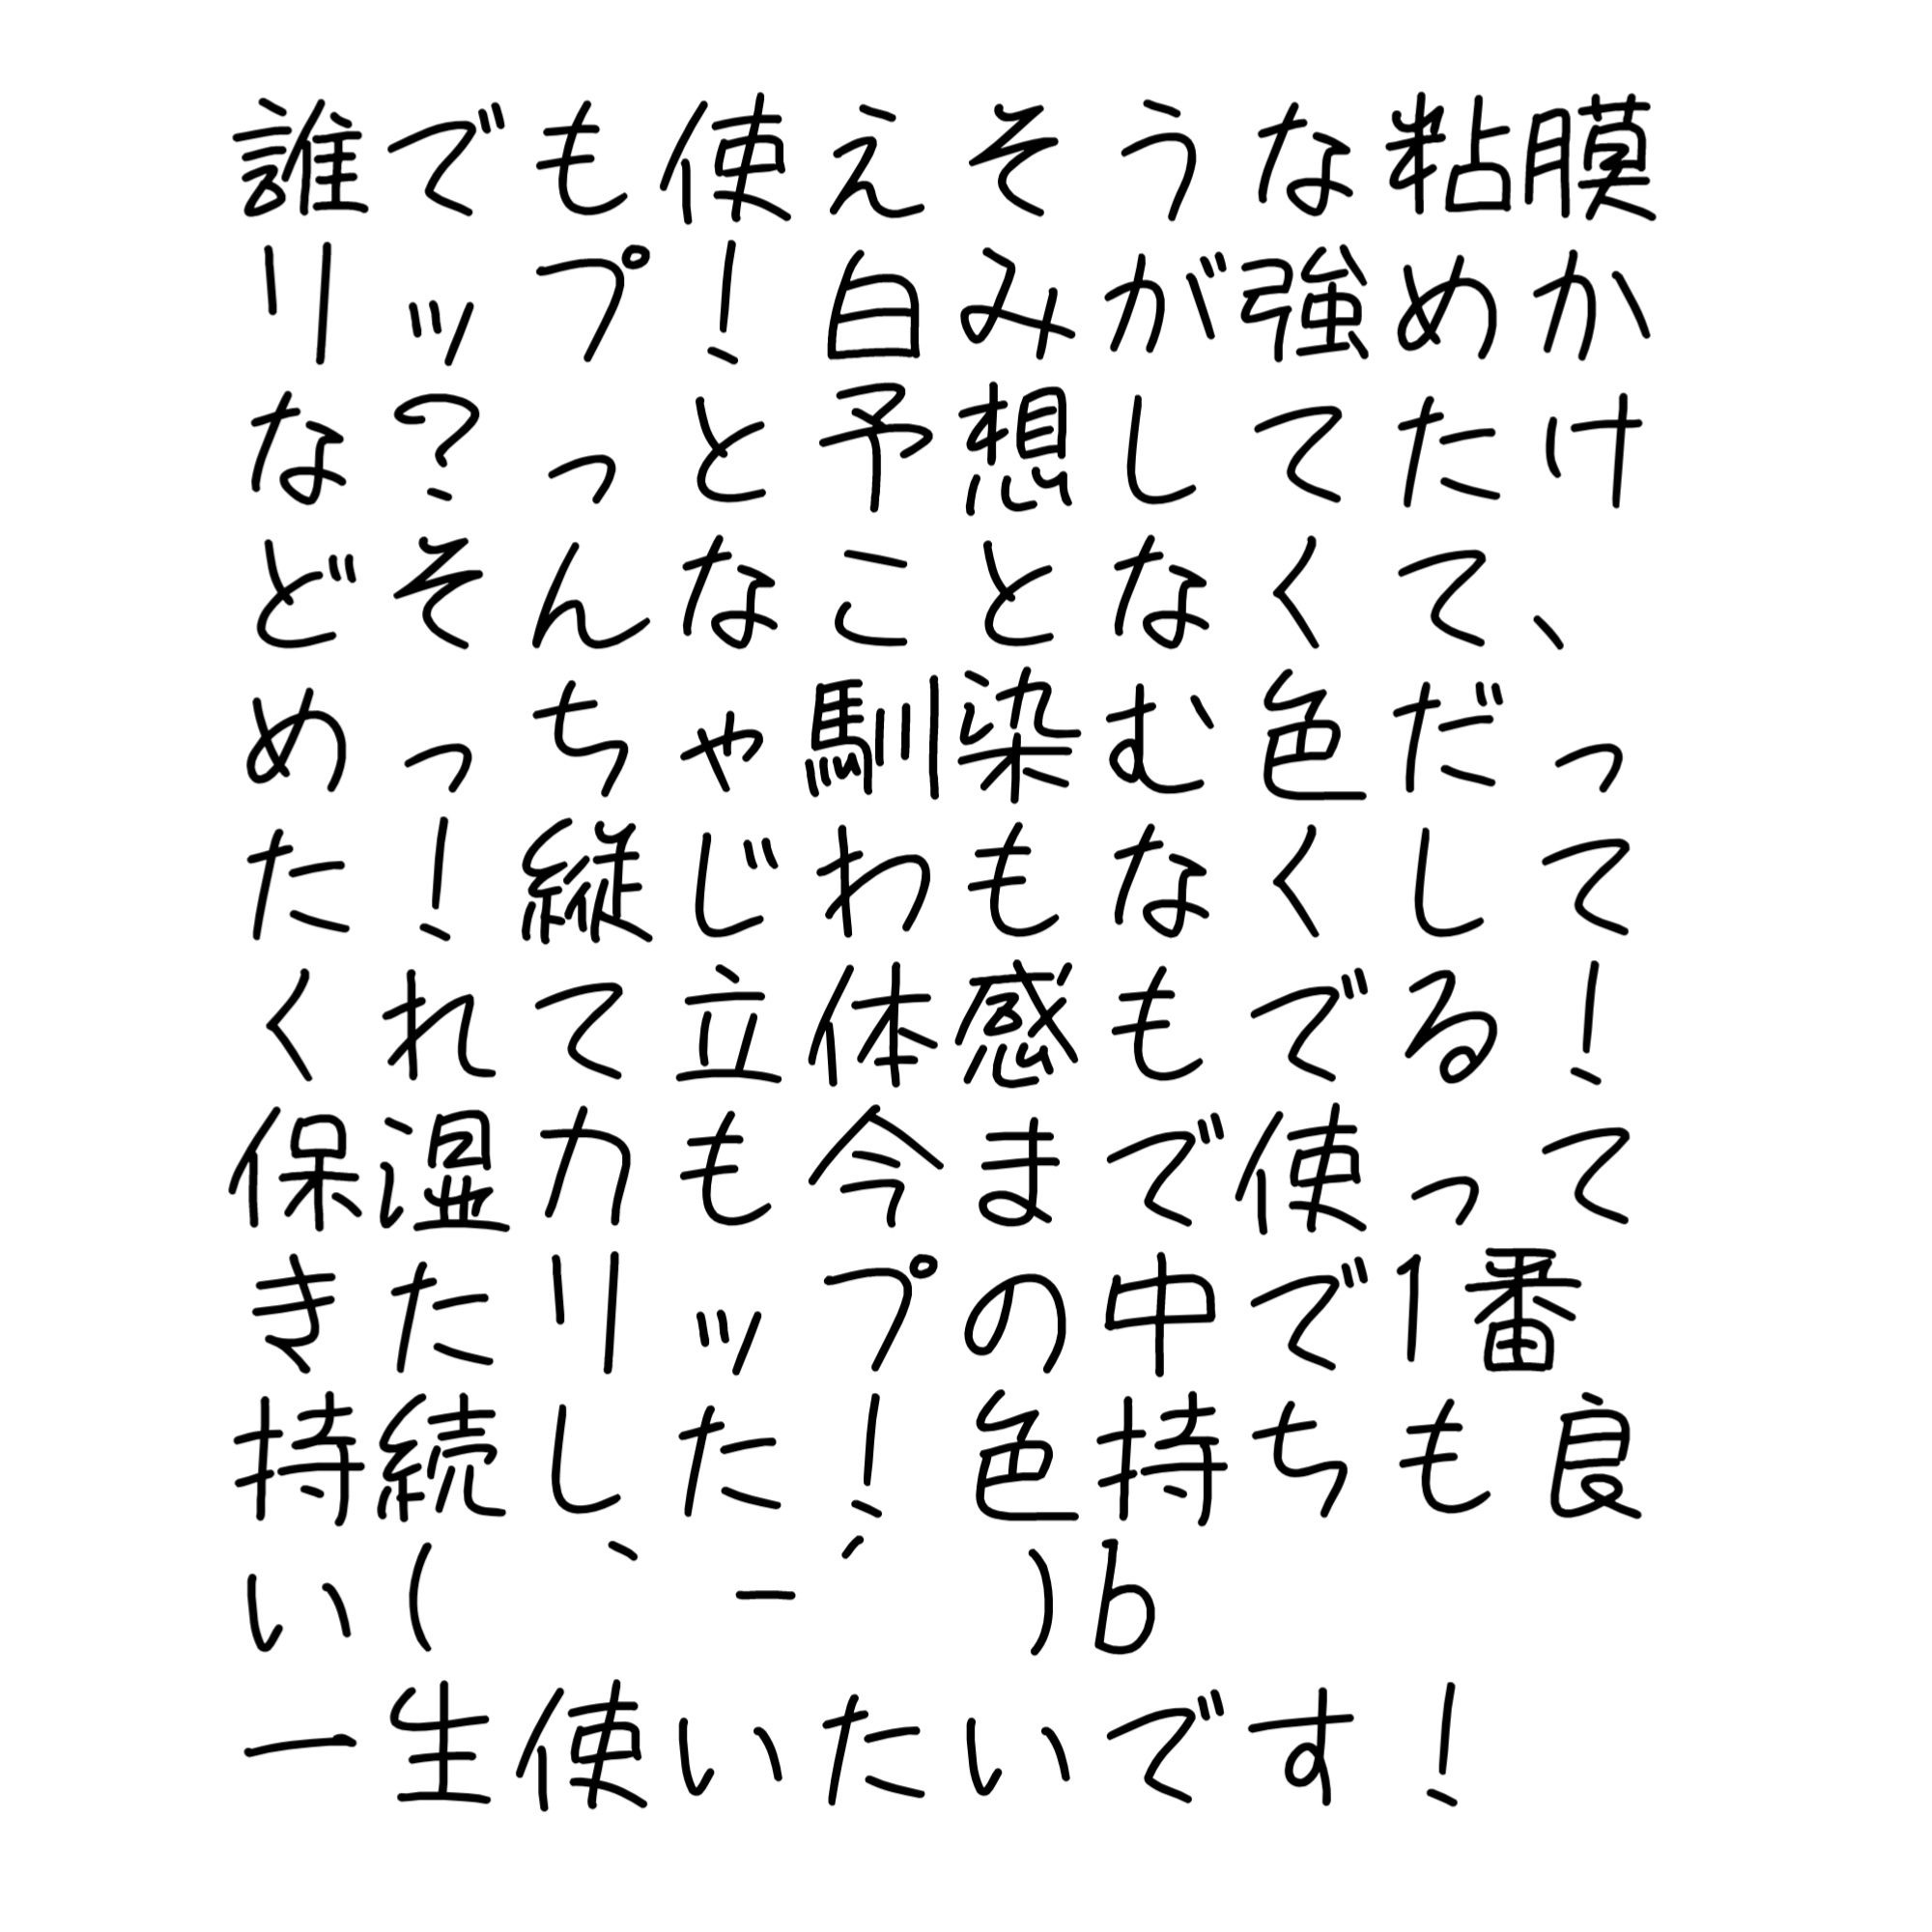 誰でも使えそうな粘膜
リップ!白みが強めか
な?っと予想してたけ
どそんなことなくて、
めっちゃ馴染む色だっ
た!縦じわもなくして
くれて立体感もでる!
保湿力も今まで使って
きたリップの中で1番
持続した!色持ちも良
い(｀-´)b
一生使いたいです!